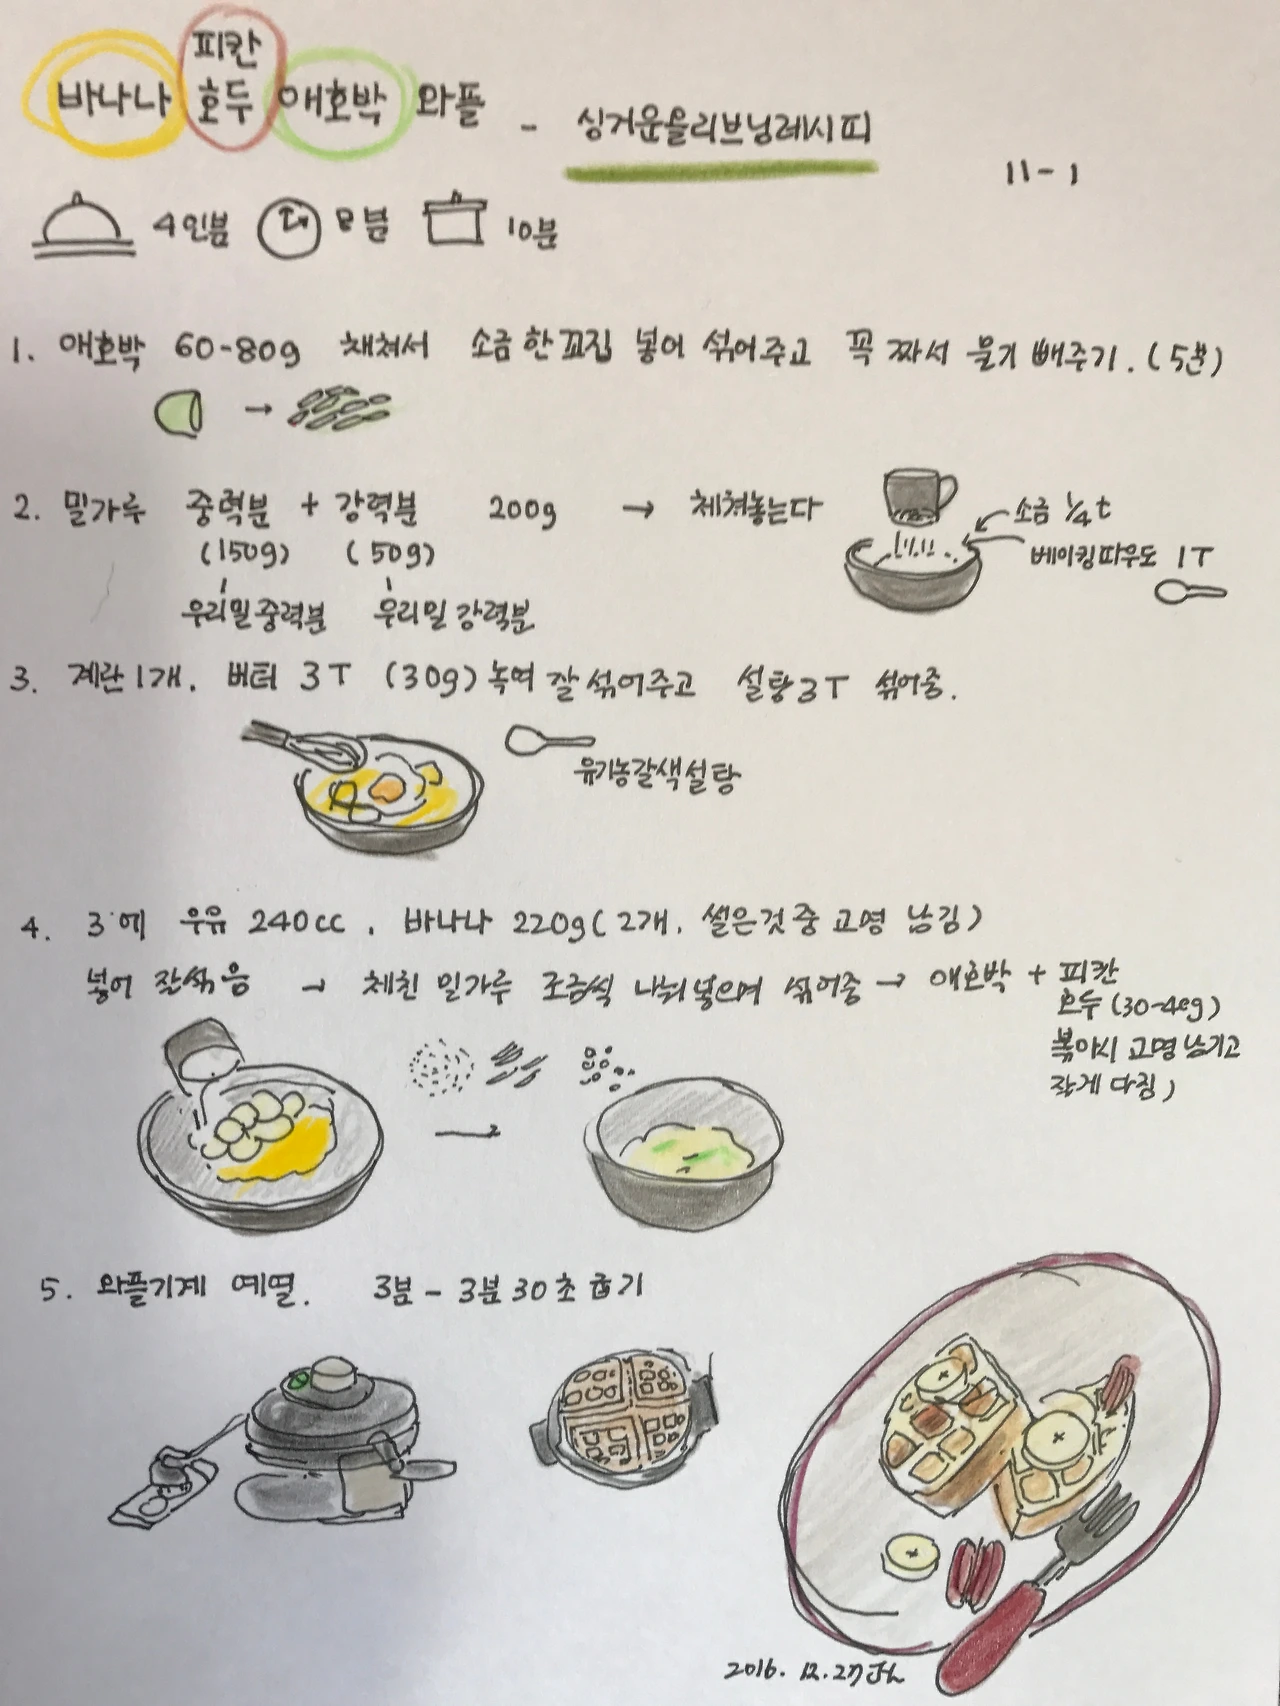 피칸
바나나 호두 애호박 와플 - 싱거운올리브님레시피
11-1
4인분 8분 10분
1. 애호박 60-80g 채쳐서 소금 한꼬집 넣어 섞어주고 꼭 짜서 물기 빼주기. (5분)
2. 밀가루 중력분 + 강력분 200g → 체쳐놓는다
(150g) (50g)
우리밀중력분 우리밀 강력분
소금 1/4t
베이킹파우도 1T
3. 계란1개. 버터 3T (30g) 녹여 잘 섞어주고 설탕3T 섞어줌.
유기농갈색설탕
4. 3에 우유 240cc, 바나나 220g(2개, 썰은것 중 고명 남김)
넣어 잘섞음 → 체친 밀가루 조금씩 나눠넣으며 섞어줌 → 애호박 + 피칸
호두 (30-40g)
볶아서 고명 남기고
잘게 다짐)
5. 와플기계 예열. 3분-3분30초 굽기
2016. 12.27